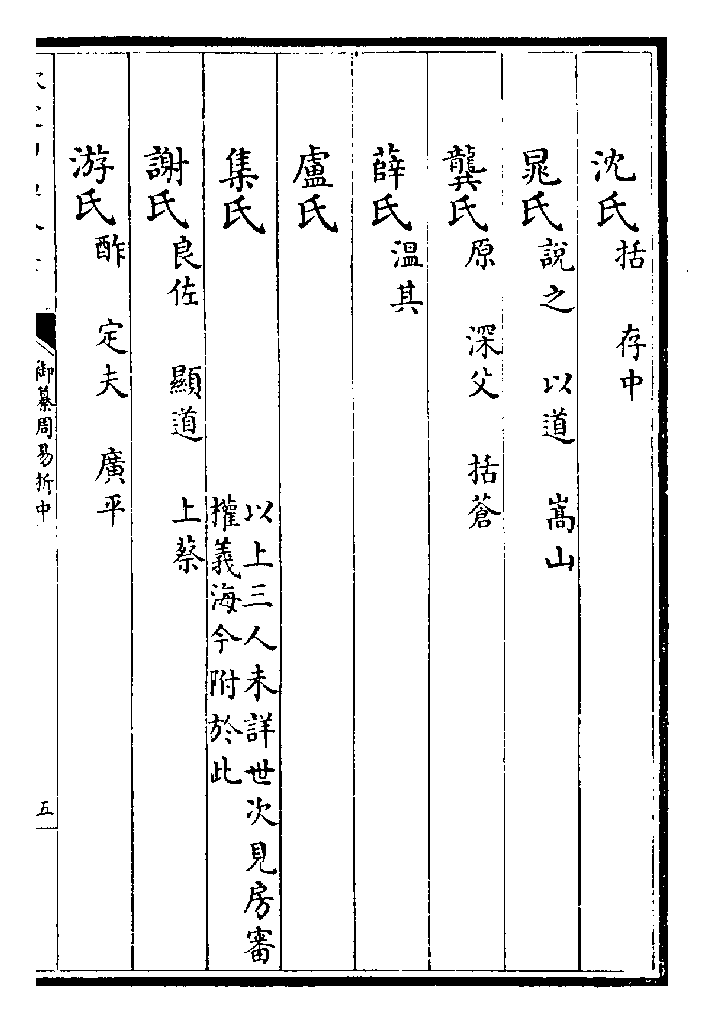 沈氏括 存中
晁氏説之 以道 嵩山
龔氏原 深父 括蒼
薛氏溫其
盧氏
集氏以上三人未詳世次見房審
權義海今附於此
謝氏良佐 顯道 上蔡
游氏酢 定夫 廣平
御纂周易折中
五